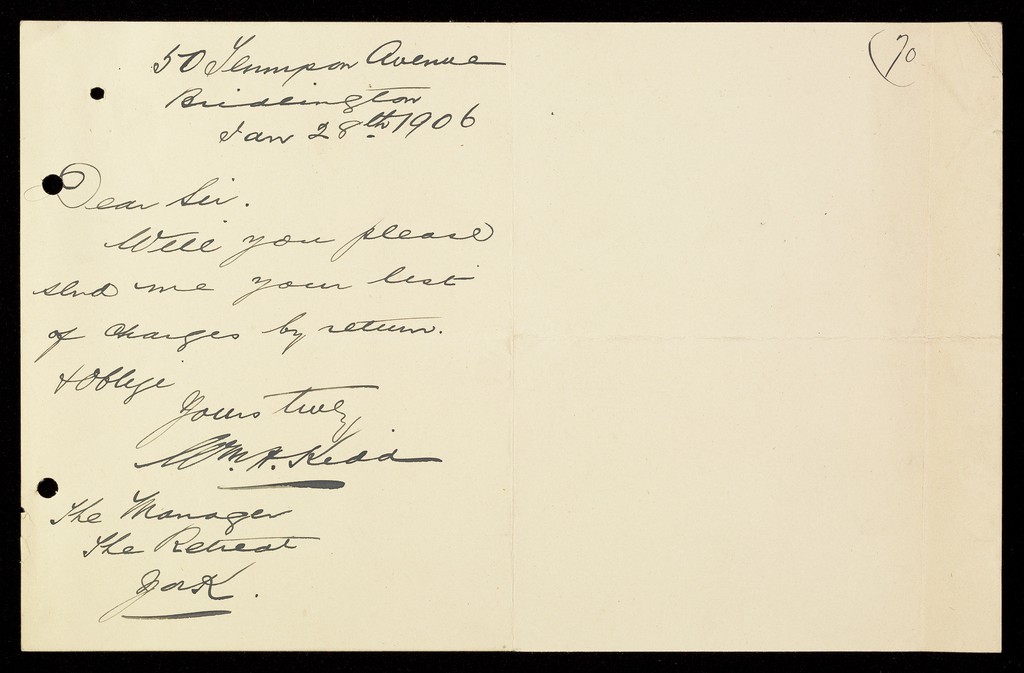 50 Tennyson Avenue
Bridlington
Jan 28th 1906
70
Dear Sir.
Will you please
send me your list
of charges by return.
& Oblige
Yours truly,
Wm. H. Kidd
The Manager
The Retreat
York.